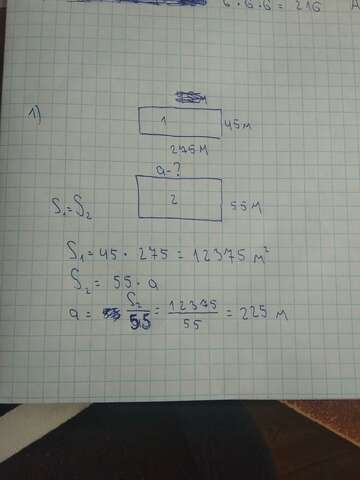 6 · 6 · 6 = 216
1)
1
45 м
275 м
a - ?
2
55 м
S₁ = S₂
S₁ = 45 · 275 = 12375 м²
S₂ = 55 · a
a = S₂/55 = 12375/55 = 225 м